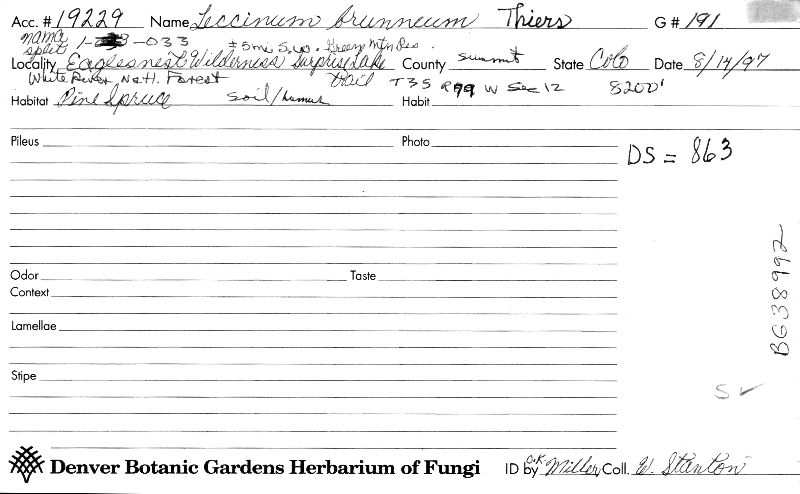 Acc. # 19229 Name Leccinum brunneum Thiers G # 191
NAMA split 1- -033 ±5mi S.W. Green Mtn Res.
Locality Eaglesnest Wilderness Surprise Lake Trail County Summit State Colo Date 8/14/97
White River Natl. Forest T3S R79 W Sec 12 8200'
Habitat Pine Spruce soil/humus Habit
Pileus Photo
DS = 863
Odor Taste
Context
BG38992
Lamellae
Stipe
S ✓
Denver Botanic Gardens Herbarium of Fungi ID by O.K. Miller Coll. W. Stanton